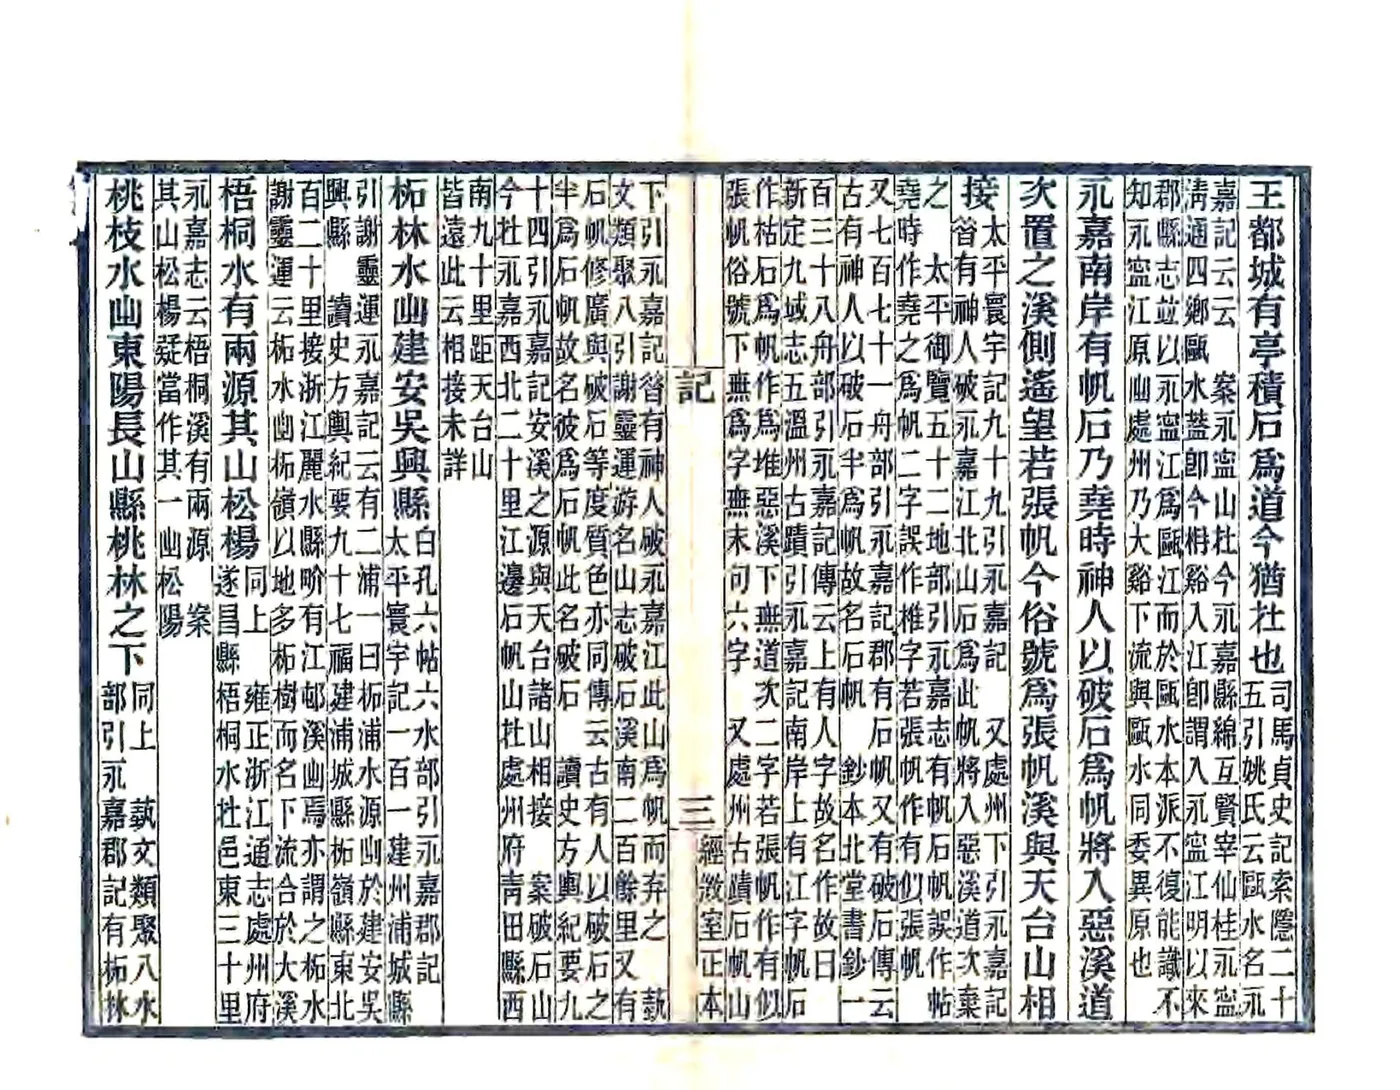 王都城有亭積石爲道今猶在也
司馬貞史記索隱二十
五引姚氏云甌水名永
嘉記云云　案永寧山在今永嘉縣綿互賢宰仙桂永寧
淸通四鄉甌水蓋卽今枏谿入江卽謂入永寧江明以來
郡縣志竝以永寧江爲甌江而於甌水本派不復能識不
知永寧江原出處州乃大谿下流與甌水同委異原也
永嘉南岸有帆石乃堯時神人以破石爲帆將入惡溪道
次置之溪側遙望若張帆今俗號爲張帆溪與天台山相
接
太平寰宇記九十九引永嘉記　又處州下引永嘉記
昝有神人破永嘉江北山石爲此帆將入惡溪道次棄
之　太平御覽五十二地部引永嘉志有帆石帆誤作帖
堯時作堯之爲帆二字誤作椎字若張帆作有似張帆
又七百七十一舟部引永嘉記郡有石帆又有破石傳云
古有神人以破石半爲帆故名石帆　鈔本北堂書鈔一
百三十八舟部引永嘉記傳云上有人字故名作故曰
新定九域志五溫州古蹟引永嘉記南岸上有江字帆石
作枯石爲帆作爲堆惡溪下無道次二字若張帆作有似
張帆俗號下無爲字無末句六字　又處州古蹟石帆山
記
三
經微室正本
下引永嘉記昝有神人破永嘉江此山爲帆而弃之　蓺
文類聚八引謝靈運游名山志破石溪南二百餘里又有
石帆修廣與破石等度質色亦同傳云古有人以破石之
半爲石帆故名彼爲石帆此名破石　讀史方輿紀要九
十四引永嘉記安溪之源與天台諸山相接　案破石山
今在永嘉西北二十里江邊石帆山在處州府靑田縣西
南九十里距天台山
皆遠此云相接未詳
柘林水出建安吳興縣
白孔六帖六水部引永嘉郡記
太平寰宇記一百一建州浦城縣
引謝靈運永嘉記云有二浦一曰柘浦水源出於建安吳
興縣　讀史方輿紀要九十七福建浦城縣柘嶺縣東北
百二十里接浙江麗水縣畍有江郫溪出焉亦謂之柘水
謝靈運云柘水出柘嶺以地多柘樹而名下流合於大溪
梧桐水有兩源其山松楊
同上　雍正浙江通志處州府
遂昌縣梧桐水在邑東三十里
永嘉志云梧桐溪有兩源　案
其山松楊疑當作其一出松陽
桃枝水出東陽長山縣桃林之下
同上　蓺文類聚八水
部引永嘉郡記有柘林